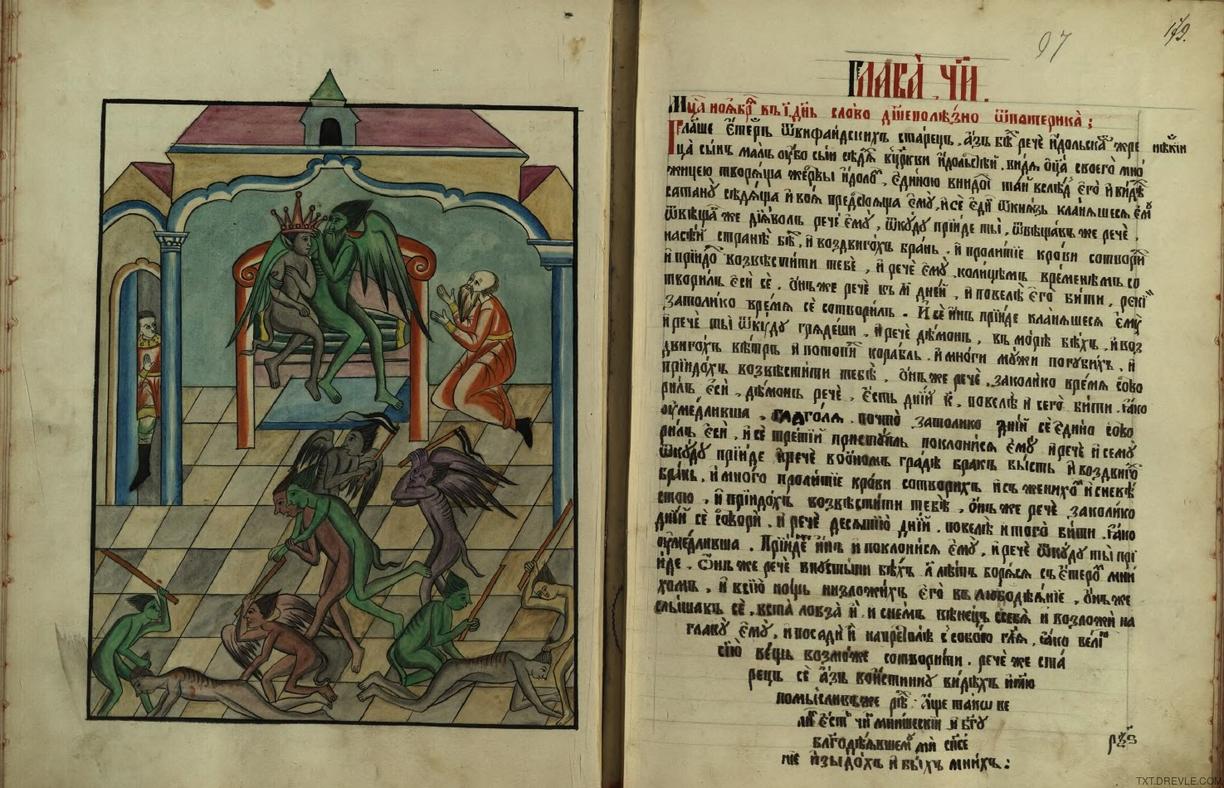 97
179.
Глава̀ ч҃и.
Мц҃а ноѧбр҃ѧ въ і҃ дн҃ь слово дш҃еполѣзно ѿ патерика;
Гл҃аше е҆теръ ѿ ѳифаидскихъ старецъ, а҆зъ бѣ рече и҆дольска жре
нѣкіи
ца сынъ малъ оу҆бо сыи сѣдѧ въ цр҃кви и҆дольстѣй. видѧ ѻ҆ц҃а своего мно
жицею творѧща же́ртвы и҆доло, е҆диною внидо таи вслѣд е҆го и҆ видѣ
сатану сѣдѧща и҆ воѧ предстоѧща е҆му, и҆ се е҆ди ѿ кнѧзь кланѧшесѧ е҆м
ѿвѣща же дїѧволъ рече е҆му, ѿкуду прїиде ты, ѿвѣщавъ же рече
на сѣй странѣ бѣ, и҆ воздвигохъ брань, и҆ пролитїе крови сотвори
и҆ прїидо возвѣстити тебѣ, и҆ рече е҆му, колицѣмъ временѣмъ со
творилъ е҆си се, ѻ҆нъ же рече въ м҃ дней, и҆ повелѣ е҆го бити, рекі
за толико времѧ се сотворилъ. И се и҆нъ прїиде кланѧшесѧ е҆му
и҆ рече ты ѿкуду грѧдеши, и҆ рече демонъ, въ морѣ бѣхъ, и҆ воз
двигохъ вѣтръ и҆ потопи корабль, и҆ многи мужи погубихъ, и҆
прїидохъ возвѣстити тебѣ, ѻ҆нъ же рече, за колико времѧ со тво
рилъ е҆си, демонъ рече, е҆сть дній к҃, повелѣ и҆ сего бити, ꙗ҆ко
оу҆медливша, глаголѧ почто за толико дній се едино сотво
рилъ е҆си, и҆ се третїй приступль поклонисѧ е҆му и҆ рече и҆ сему
ѿкуду прїиде и҆ рече во ѻ҆номъ градѣ бракъ бысть и҆ воздвиго
брань, и҆ много пролитїе крови сотворихъ и҆ съ женихо и҆ с невѣ
стою, и҆ прїидохъ возвѣстити тебѣ, ѻ҆нъ же рече, за колико
дній се сотвори, и҆ рече десѧтїю дній, повелѣ и҆ того бити, ꙗ҆ко
оу҆медлившa. Прїиде и҆нъ и҆ поклонисѧ е҆му, и҆ рече ѿкуду ты прі
и҆де. Ѻнъ же рече в пустыни бѣхъ м҃ лѣтъ борѧсѧ съ е҆теро мни
хомъ, и҆ в сїю нощь низложихъ е҆го въ любодѣѧнїе, ѻ҆нъ же
слышавъ се, воста лобза и҆ и҆ снемъ вѣнецъ с себѧ и҆ возложи на
главу е҆му, и҆ посади и҆ на престолѣ с собою гл҃ѧ, ꙗ҆ко вели
сїю вещь возможе сотворити. рече же ста
рецъ се а҆зъ воистинну видѣхъ и҆ пїю
помысливъ же рѣ: А҆ще тако ве
лі е҆сть чи мнишескїи и҆ бг҃у
благодѣѧвшему ми сп҃се
нїе и҆зыдохъ и҆ быхъ мнихъ:
TXT.DREVLE.COM